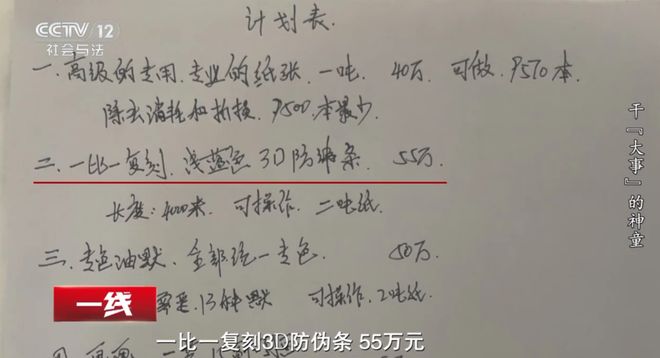 CCTV 12
社会与法
计划表.
一.高级的专用.专业的纸张.一吨. 40万 可做.9570本.
除去消耗和折损.9500本最少.
二.一比一复刻.浅蓝色3D防伪条. 55万.
长度:4000米. 可操作. 二吨纸.
三.专色油默.全部统一专色. 50万.
13种默 可操作.2吨纸.
干『大事』的神童
一线
一比一复刻3D防伪条 55万元